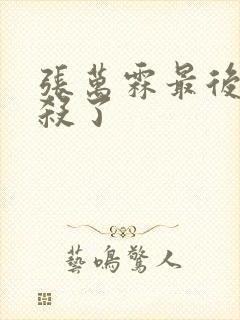 張萬霖最後
殺了
藝鳴驚人